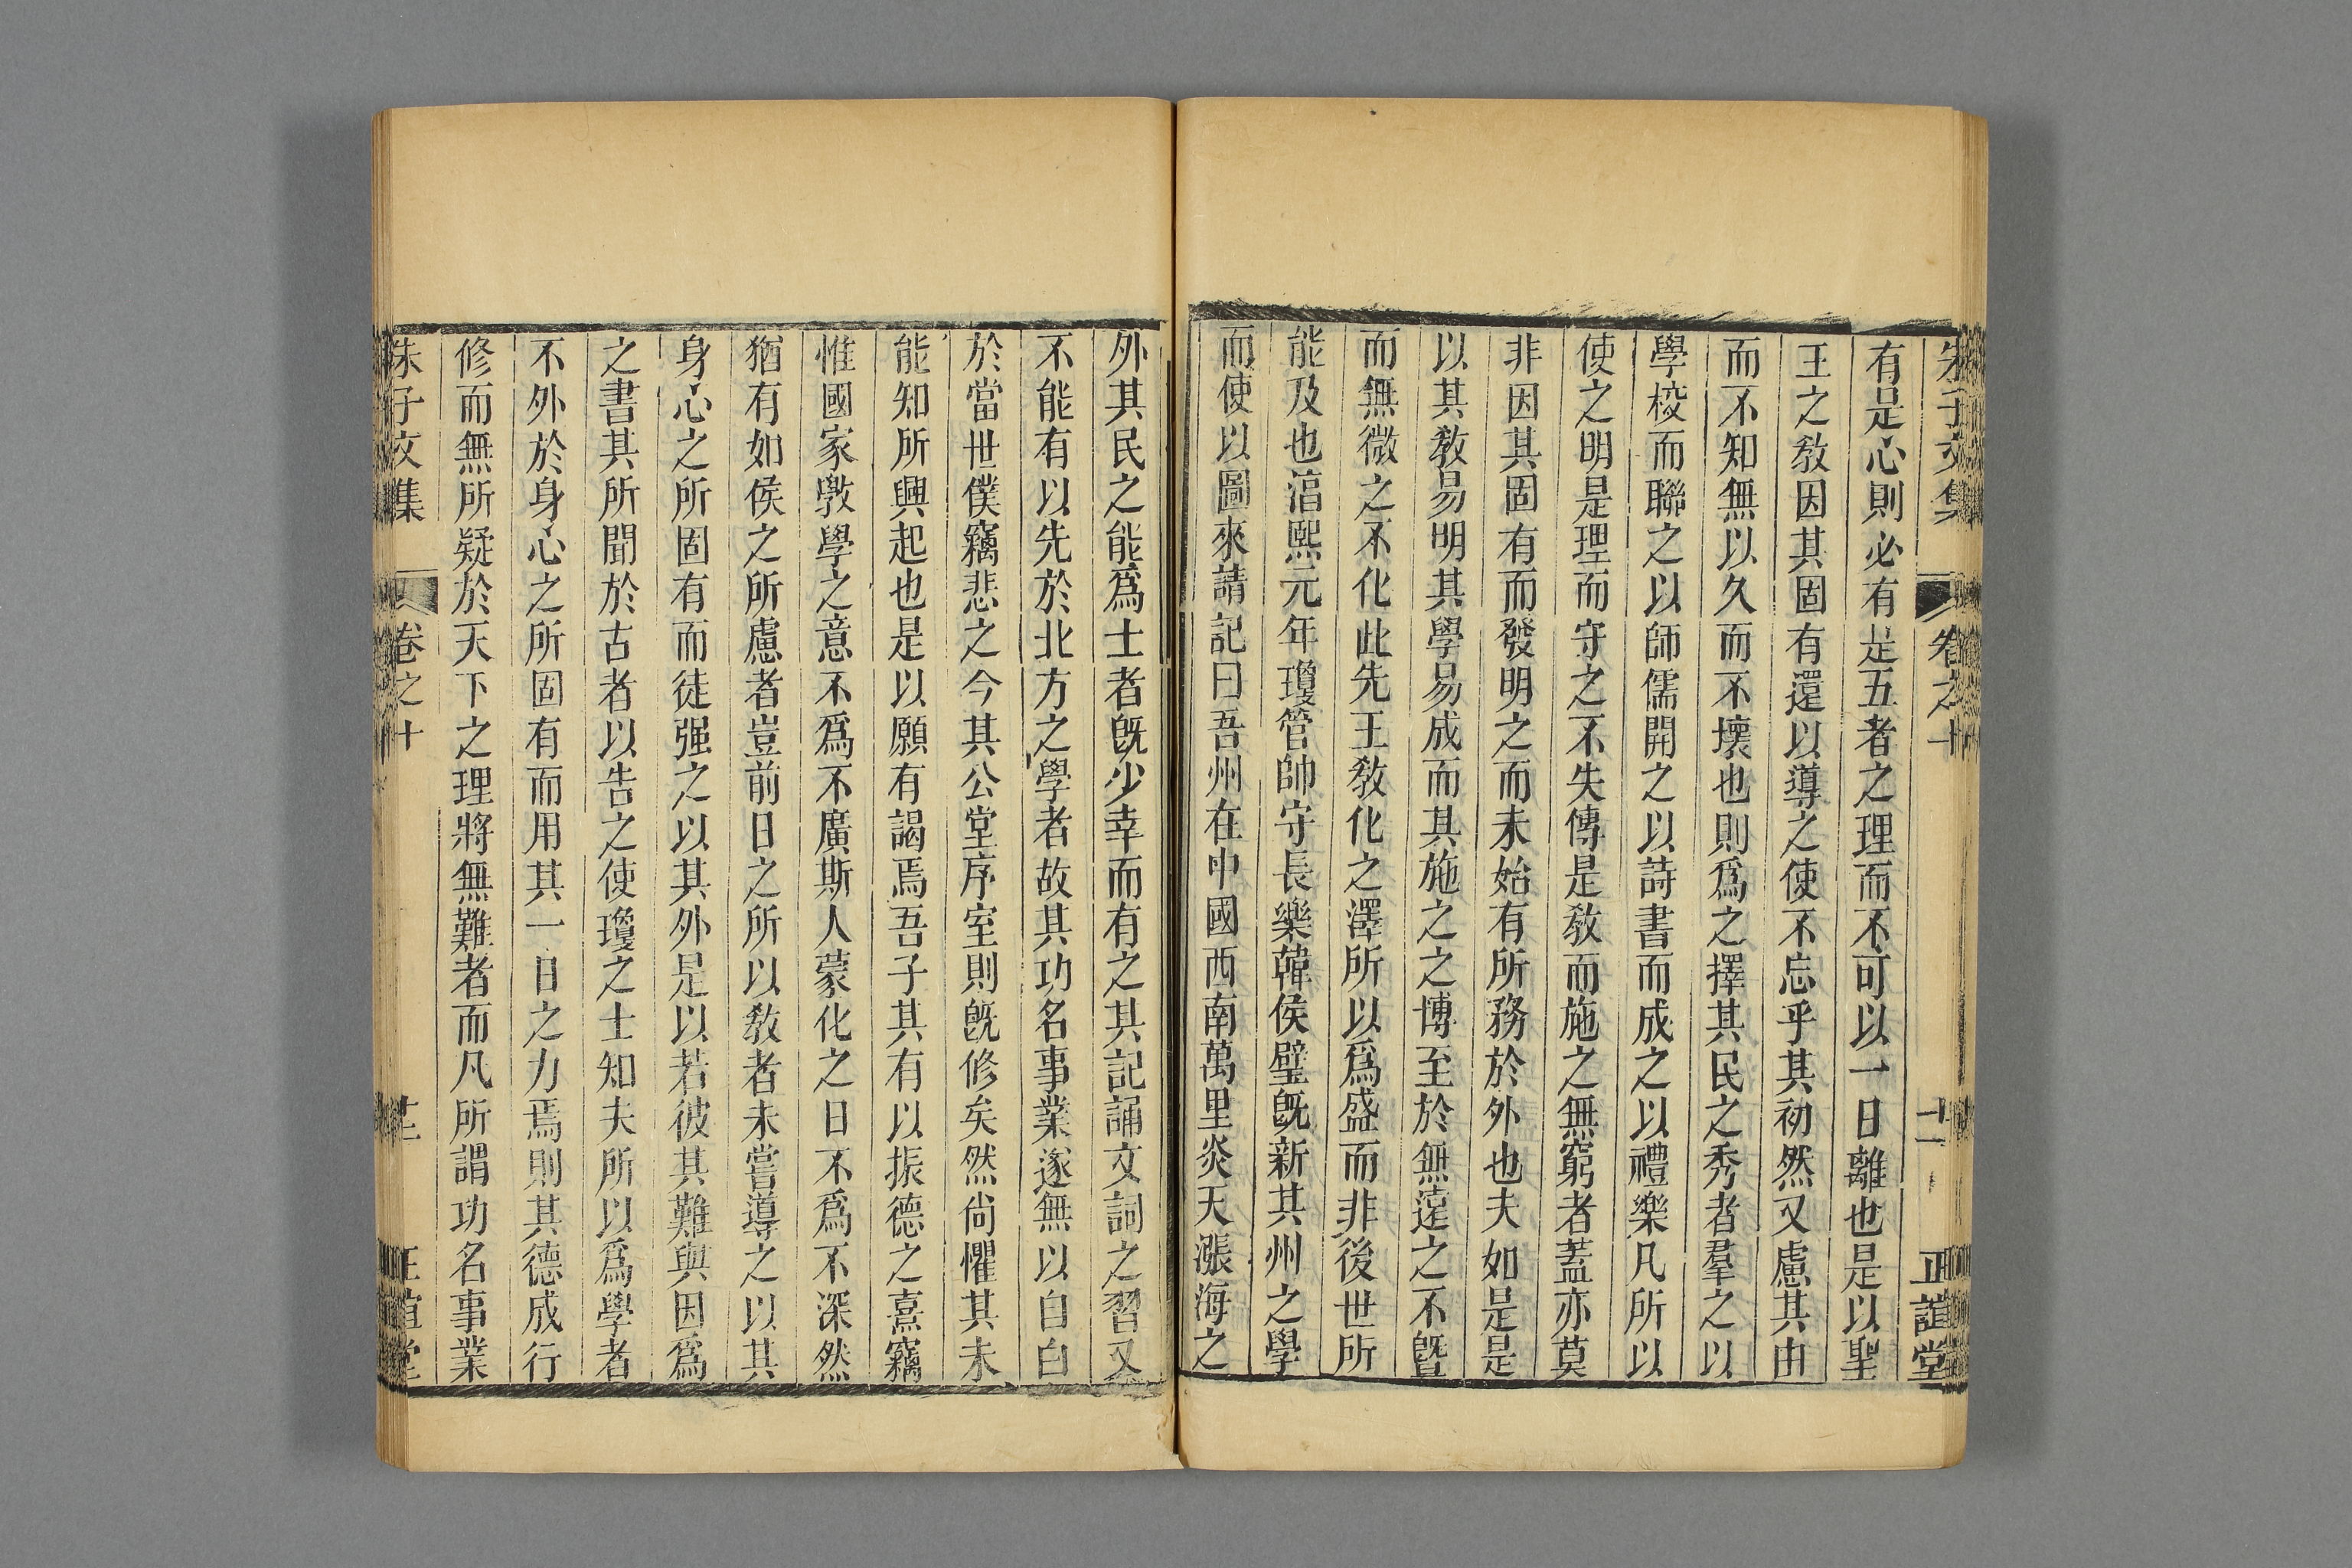 朱子文集 卷之十 十一 正誼堂
有是心則必有是五者之理而不可以一日離也是以聖
王之敎因其固有還以導之使不忘乎其初然又慮其由
而不知無以久而不壞也則爲之擇其民之秀者羣之以
學校而聯之以師儒開之以詩書而成之以禮樂凡所以
使之明是理而守之不失傳是敎而施之無窮者蓋亦莫
非因其固有而發明之而未始有所務於外也夫如是是
以其敎易明其學易成而其施之之博至於無遠之不曁
而無微之不化此先王敎化之澤所以爲盛而非後世所
能及也湻熙元年瓊管帥守長樂韓侯璧旣新其州之學
而使以圖來請記曰吾州在中國西南萬里炎天漲海之
外其民之能爲士者旣少幸而有之其記誦文詞之習又
不能有以先於北方之學者故其功名事業遂無以自白
於當世僕竊悲之今其公堂序室則旣修矣然尙懼其未
能知所興起也是以願有謁焉吾子其有以振德之熹竊
惟國家斆學之意不爲不廣斯人蒙化之日不爲不深然
猶有如侯之所慮者豈前日之所以敎者未嘗導之以其
身心之所固有而徒强之以其外是以若彼其難與因爲
之書其所聞於古者以告之使瓊之士知夫所以爲學者
不外於身心之所固有而用其一日之力焉則其德成行
修而無所疑於天下之理將無難者而凡所謂功名事業
朱子文集 卷之十 十二 正誼堂